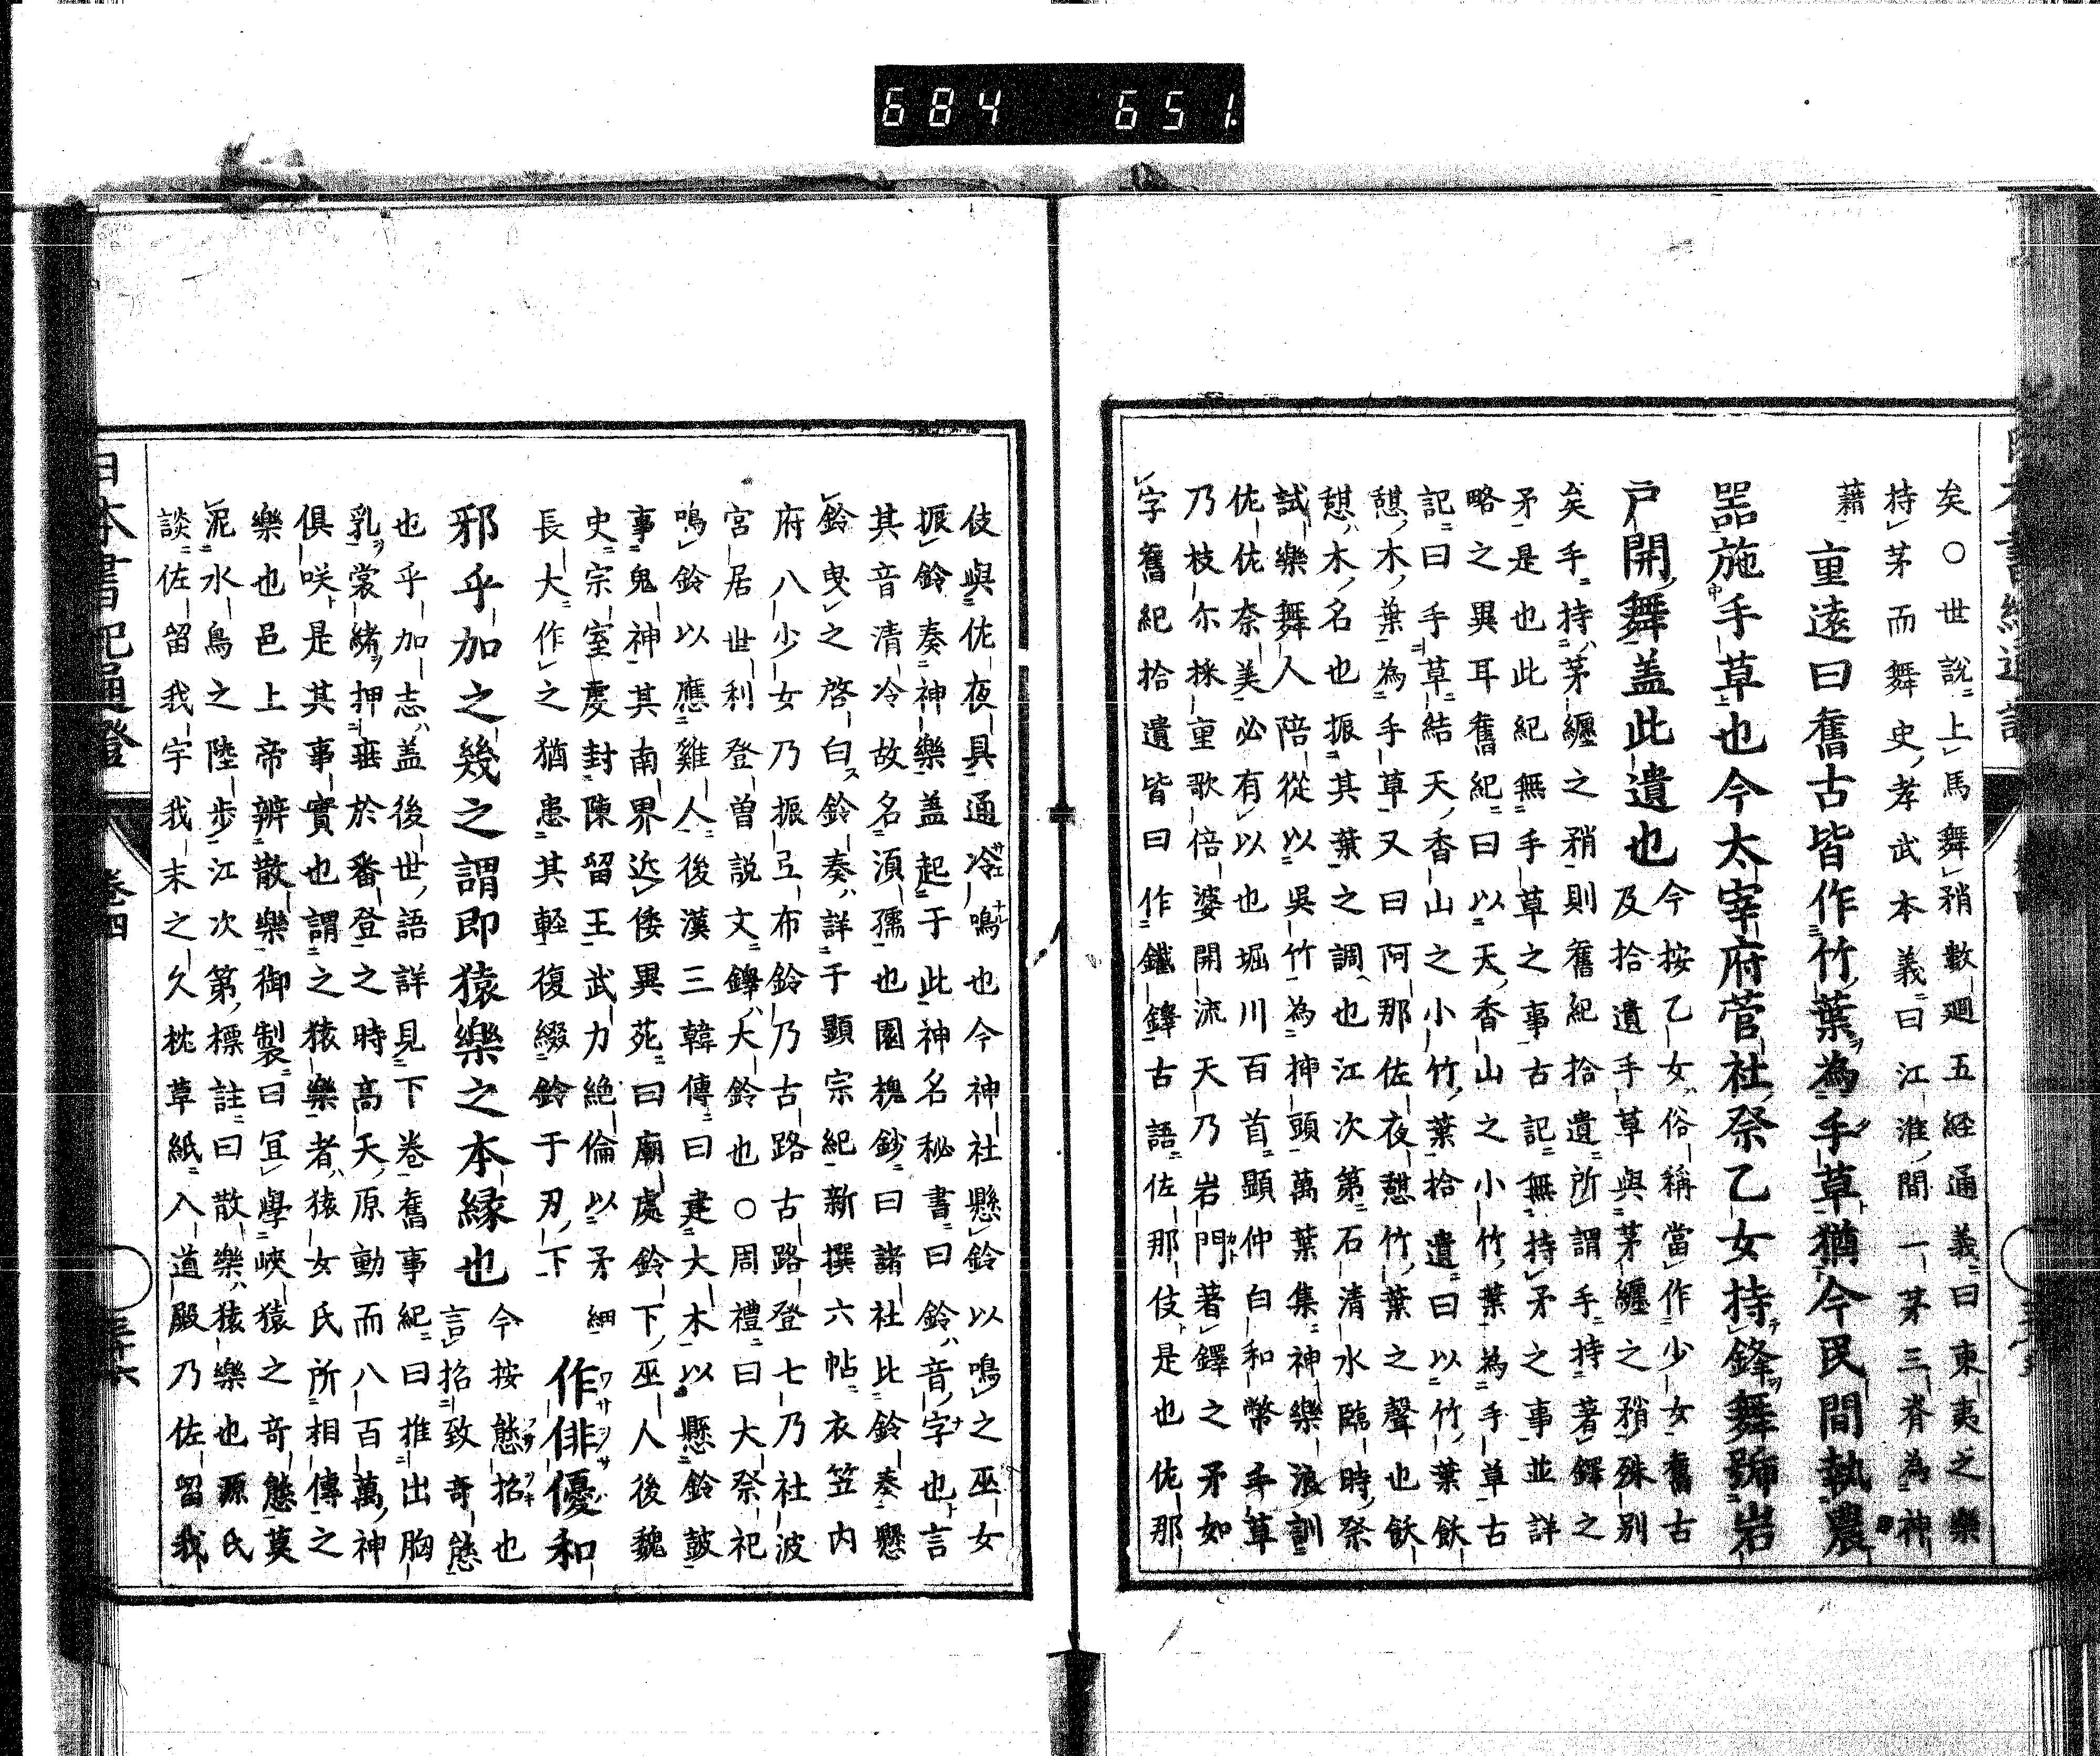 684 651
矣○世說上馬舞矟數廻五経通義曰東夷之樂
持茅而舞史孝武本義曰江淮間一茅三脊為神
藉
重遠曰舊古皆作竹葉為手草猶今民間執農
噐施手草也今太宰府菅社祭乙女持鋒舞號岩
戸開舞盖此遺也
今按乙女俗稱當作少女舊古
及拾遺手草與茅纏之矟殊别
矣手持茅纏之矟則舊紀拾遺所謂手持著鐸之
矛是也此紀無手草之事古記無持矛之事並詳
略之異耳舊紀曰以天香山之小竹葉為手草古
記曰手草結天香山之小竹葉拾遺曰以竹葉飫
憩木葉為手草又曰阿那佐夜憩竹葉之聲也飫
憩木名也振其葉之調也江次第石清水臨時祭
試樂舞人陪從以吳竹為挿頭萬葉集神樂浪訓
佐佐奈美必有以也堀川百首顯仲白和幣手草
乃枝尓採重歌倍婆開流天乃岩門著鐸之矛如
字舊紀拾遺皆曰作鐵鐸古語佐那伎是也佐那
伎與佐夜具通冷鳴也今神社懸鈴以鳴之巫女
振鈴奏神樂盖起于此神名秘書曰鈴音字也言
其音清冷故名湏孺也園槐鈔曰諸社比鈴奏懸
鈴曳之啓白鈴奏詳于顯宗紀新撰六帖衣笠内
府八少女乃振弖布鈴乃古路古路登七乃社波
宮居世利登曽説文鐸大鈴也○周禮曰大祭祀
鳴鈴以應雞人後漢三韓傳曰建大木以懸鈴鼓
事鬼神其南界近倭異苑曰廟處鈴下巫人後魏
史宗室慶封陳留王武力絶倫以矛細
長大作之猶患其軽復綴鈴于刃下
作俳優和
邪乎加之幾之謂即猿樂之本縁也
今按態招也
言招致竒態
也乎加志盖後世語詳見下巻舊事紀曰推出胸
乳裳緒押垂於番登之時高天原動而八百萬神
俱咲是其事實也謂之猿樂者猿女氏所相傳之
樂也邑上帝辨散樂御製曰冝學峽猿之竒態莫
泥水鳥之陸歩江次第標註曰散樂猿樂也源氏
談佐留我字我末之久枕草紙入道殿乃佐留我
日本書紀通證
卷四